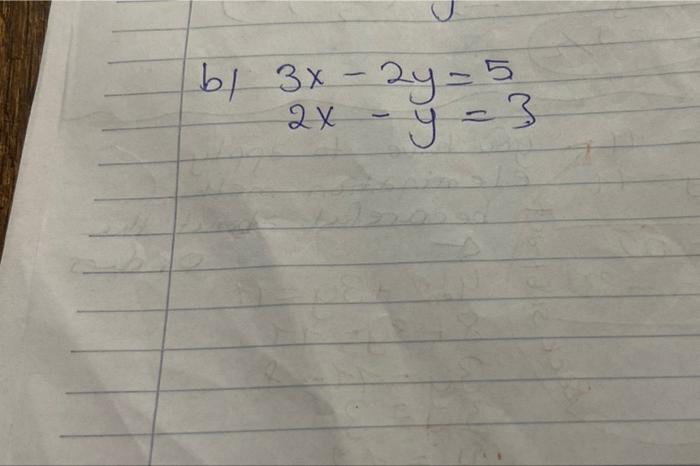 b) 3x - 2y = 5
2x - y = 3